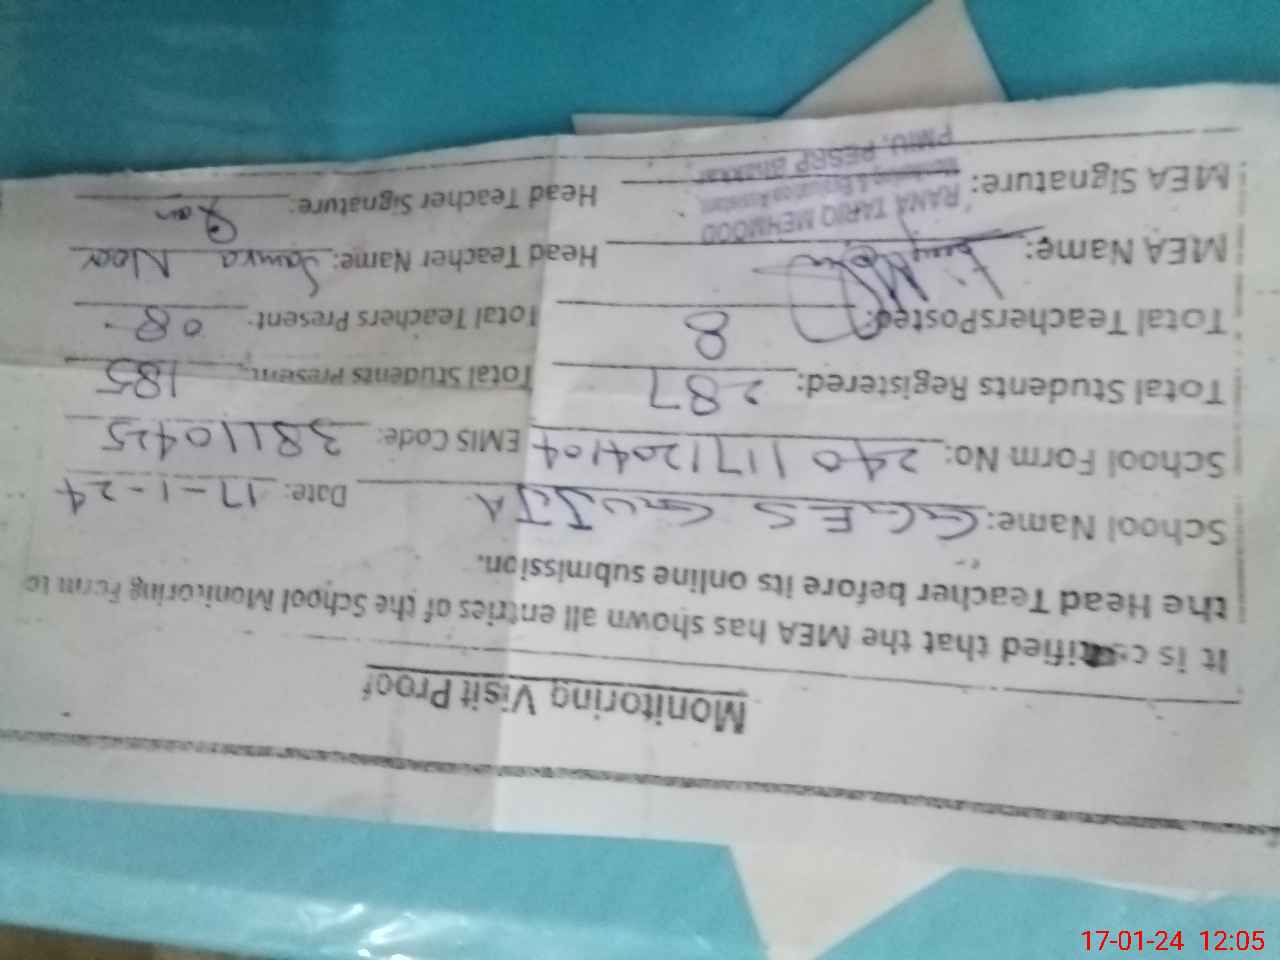 Monitoring Visit Proof
It is certified that the MEA has shown all entries of the School Monitoring Form to
the Head Teacher before its online submission.
School Name: GGES GUJJA Date: 17-1-24
School Form No: 2401171204104 EMIS Code: 38110425
Total Students Registered: 287 Total Students Present: 185
Total Teachers Posted: 8 Total Teachers Present: 08
MEA Name: Head Teacher Name: Samra Noor
RANA TARIQ MEHMOOD
MEA Signature: Head Teacher Signature:
PMIU, PESRP Bhakkar
17-01-24 12:05